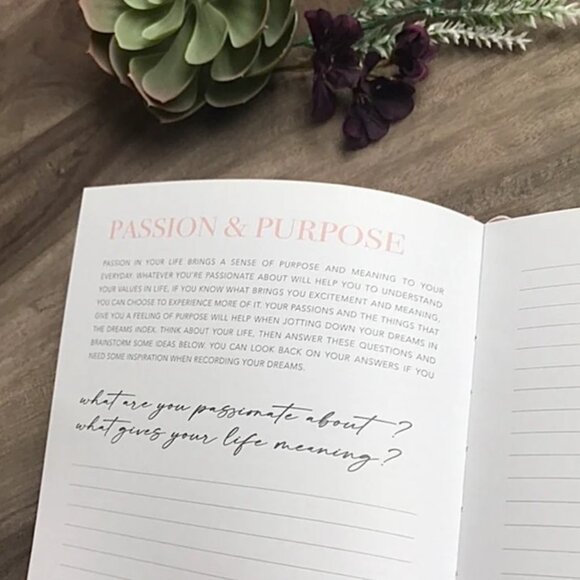 PASSION & PURPOSE
PASSION IN YOUR LIFE BRINGS A SENSE OF PURPOSE AND MEANING TO YOUR
EVERYDAY. WHATEVER YOU'RE PASSIONATE ABOUT WILL HELP YOU TO UNDERSTAND
YOUR VALUES IN LIFE, IF YOU KNOW WHAT BRINGS YOU EXCITEMENT AND MEANING,
YOU CAN CHOOSE TO EXPERIENCE MORE OF IT. YOUR PASSIONS AND THE THINGS THAT
GIVE YOU A FEELING OF PURPOSE WILL HELP WHEN JOTTING DOWN YOUR DREAMS IN
THE DREAMS INDEX. THINK ABOUT YOUR LIFE, THEN ANSWER THESE QUESTIONS AND
BRAINSTORM SOME IDEAS BELOW. YOU CAN LOOK BACK ON YOUR ANSWERS IF YOU
NEED SOME INSPIRATION WHEN RECORDING YOUR DREAMS.
what are you passionate about?
what gives your life meaning?